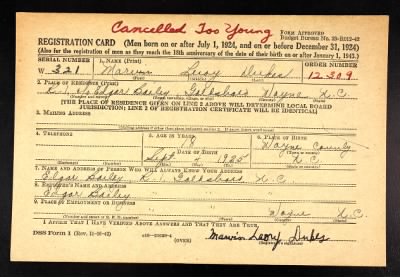 Cancelled Too Young
FORM APPROVED
Budget Bureau No. 33-R012-42
REGISTRATION CARD (Men born on or after July 1, 1924, and on or before December 31, 1924)
(Also for the registration of men as they reach the 18th anniversary of the date of their birth on or after January 1, 1943.)
SERIAL NUMBER 1. NAME (Print) ORDER NUMBER
W 321 Marvin Leroy Dukes 12309
2. PLACE OF RESIDENCE (Print)
R 1, % Edgar Bailey Goldsboro Wayne N.C.
[THE PLACE OF RESIDENCE GIVEN ON LINE 2 ABOVE WILL DETERMINE LOCAL BOARD
JURISDICTION; LINE 2 OF REGISTRATION CERTIFICATE WILL BE IDENTICAL]
3. MAILING ADDRESS
[Mailing address if other than place indicated on line 2. If same, insert word same]
4. TELEPHONE 5. AGE IN YEARS 6. PLACE OF BIRTH
18 Wayne County
DATE OF BIRTH
Sept 2 1925 N C
7. NAME AND ADDRESS OF PERSON WHO WILL ALWAYS KNOW YOUR ADDRESS
Edgar Bailey R 1 Goldsboro N.C.
8. EMPLOYER'S NAME AND ADDRESS
Edgar Bailey
9. PLACE OF EMPLOYMENT OR BUSINESS
Wayne N.C.
I AFFIRM THAT I HAVE VERIFIED ABOVE ANSWERS AND THAT THEY ARE TRUE.
DSS Form 1 (Rev. 11-16-42) (OVER) Marvin Leory Dukes